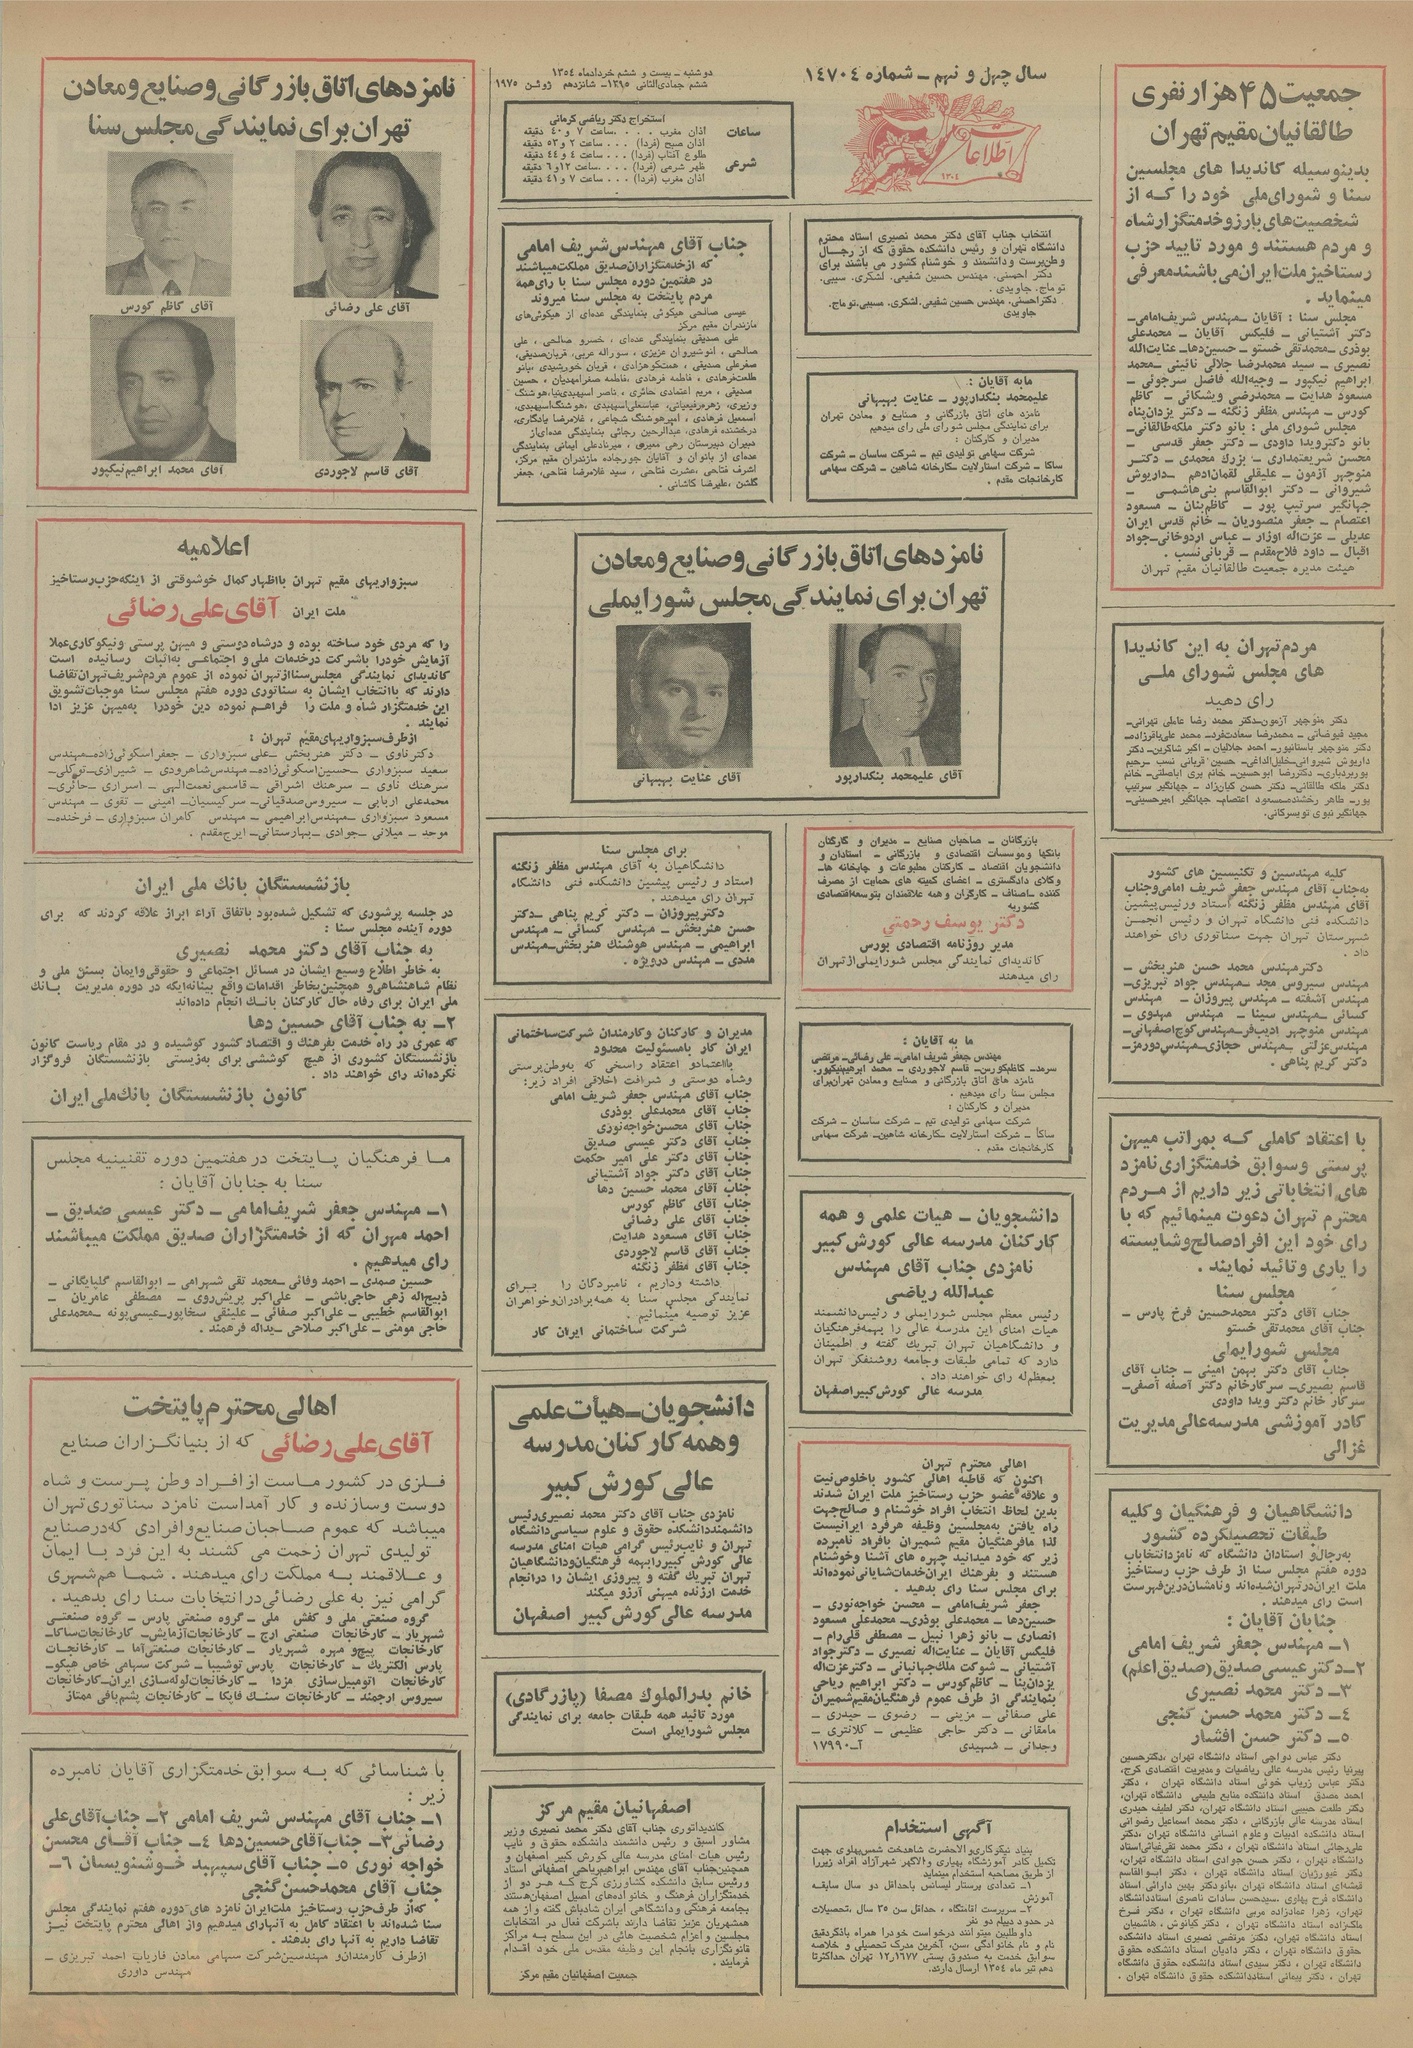 سال چهل و نهم ــ شماره ۱۴۷۰۴
دوشنبه ــ بیست و ششم خردادماه ۱۳۵۴
ششم جمادی‌الثانی ۱۳۹۵ــ شانزدهم ژوئن ۱۹۷۵
اطلاعات
۱۳۰۴
ساعات
شرعی
استخراج دکتر ریاضی کرمانی
اذان مغرب . . . .ساعت ۷ و ۴۰ دقیقه
اذان صبح (فردا) . . . ساعت ۲ و ۵۳ دقیقه
طلوع آفتاب (فردا) . . . ساعت ۴ و ۴۴ دقیقه
ظهر شرعی (فردا) . . . .ساعت ۱۲و۶ دقیقه
اذان مغرب (فردا) . . . . ساعت ۷ و ۴۱ دقیقه
جمعیت ۴۵ هزار نفری
طالقانیان مقیم تهران
بدینوسیله کاندیدا های مجلسین
سنا و شورای‌ملی خود را که از
شخصیت‌های بارز و خدمتگزار شاه
و مردم هستند و مورد تایید حزب
رستاخیز ملت ایران می‌باشند معرفی
مینماید .
مجلس سنا : آقایان ــ مهندس شریف‌امامی ــ
دکتر آشتیانی ــ فلیکس آقایان ــ محمدعلی
بوذری ــ محمدتقی خستو ــ حسین‌دها ــ عنایت‌الله
نصیری ــ سید محمدرضا جلالی نائینی ــ محمد
ابراهیم نیکپور ــ وجیه‌الله فاضل سرجوئی ــ
مسعود هدایت ــ محمدرضی ویشکائی ــ کاظم
کورس ــ مهندس مظفر زنگنه ــ دکتر یزدان‌پناه
مجلس شورای ملی : بانو دکتر ملکه طالقانی ــ
بانو دکتر ویدا داودی ــ دکتر جعفر قدسی ــ
محسن شریعتمداری ــ بزرگ محمدی ــ دکتر
منوچهر آزمون ــ علیقلی لقمان‌ادهم ــ داریوش
شیروانی ــ دکتر ابوالقاسم بنی‌هاشمی ــ
جهانگیر سرتیپ پور ــ کاظم‌بنان ــ مسعود
اعتصام ــ جعفر منصوریان ــ خانم قدس ایران
عدیلی ــ عزت‌اله اوزار ــ عباس اردوخانی ــ جواد
اقبال ــ داود فلاح‌مقدم ــ قربانی‌نسب .
هیئت مدیره جمعیت طالقانیان مقیم تهران
مردم تهران به این کاندیدا
های مجلس شورای ملی
رای دهید
دکتر منوچهر آزمون ــ دکتر محمد رضا عاملی تهرانی ــ
کلیه مهندسین و تکنیسین های کشور
به جناب آقای مهندس جعفر شریف امامی و جناب
آقای مهندس مظفر زنگنه استاد ورئیس پیشین
دانشکده فنی دانشگاه تهران و رئیس انجمن
شهرستان تهران جهت سناتوری رای خواهند
داد .
دکتر مهندس محمد حسن هنربخش ــ
مهندس سیروس مجد ــ مهندس جواد تبریزی ــ
مهندس آشفته ــ مهندس پیروزان ــ مهندس
کسائی ــ مهندس سینا ــ مهندس مهدوی ــ
مهندس منوچهر ادیب‌فر ــ مهندس کوچ‌اصفهانی ــ
مهندس عزلتی ــ مهندس حجازی ــ مهندس دورمز ــ
دکتر کریم پناهی .
با اعتقاد کاملی که بمراتب میهن
پرستی و سوابق خدمتگزاری نامزد
های انتخاباتی زیر داریم از مردم
محترم تهران دعوت مینمائیم که با
رای خود این افراد صالح و شایسته
را یاری و تائید نمایند .
مجلس سنا
جناب آقای دکتر محمدحسین فرخ پارس ــ
جناب آقای محمدتقی خستو
مجلس شورایملی
جناب آقای دکتر بهمن امینی ــ جناب آقای
قاسم بصیری ــ سرکارخانم دکتر آصفه آصفی ــ
سرکار خانم دکتر ویدا داودی
کادر آموزشی مدرسه عالی مدیریت
غزالی
دانشگاهیان و فرهنگیان و کلیه
طبقات تحصیلکرده کشور
به رجال و استادان دانشگاه که نامزد انتخابات
دوره هفتم مجلس سنا از طرف حزب رستاخیز
ملت ایران در تهران شده‌اند و نامشان در این فهرست
است رای میدهند .
جنابان آقایان :
۱ــ مهندس جعفر شریف امامی
۲ــ دکتر عیسی صدیق (صدیق اعلم)
۳ــ دکتر محمد نصیری
۴ــ دکتر محمد حسن گنجی
۵ــ دکتر حسن افشار
انتخاب جناب آقای دکتر محمد نصیری استاد محترم
دانشگاه تهران و رئیس دانشکده حقوق که از رجال
وطن‌پرست و دانشمند و خوشنام کشور می باشند برای
ما به آقایان :
علیمحمد بنکدارپور ــ عنایت بهبهانی
نامزد های اتاق بازرگانی و صنایع و معادن تهران
برای نمایندگی مجلس شورای ملی رای میدهیم
مدیران و کارکنان :
شرکت سهامی تولیدی تیم ــ شرکت ساسان ــ شرکت
ساکا ــ شرکت استارلایت ــ کارخانه شاهین ــ شرکت سهامی
کارخانجات مقدم .
جناب آقای مهندس شریف امامی
که از خدمتگزاران صدیق مملکت میباشند
در هفتمین دوره مجلس سنا با رای همه
مردم پایتخت به مجلس سنا میروند
نامزدهای اتاق بازرگانی و صنایع و معادن
تهران برای نمایندگی مجلس شورایملی
آقای علیمحمد بنکدارپور
آقای عنایت بهبهانی
بازرگانان ــ صاحبان صنایع ــ مدیران و کارکنان
بانکها و موسسات اقتصادی و بازرگانی ــ استادان و
دانشجویان اقتصاد ــ کارکنان مطبوعات و چاپخانه ها ــ
وکلای دادگستری ــ اعضای کمیته های حمایت از مصرف
کننده ــ اصناف ــ کارگران و همه علاقمندان بتوسعه اقتصادی
کشور به
دکتر یوسف رحمتی
مدیر روزنامه اقتصادی بورس
کاندیدای نمایندگی مجلس شورایملی از تهران
رای میدهند
ما به آقایان :
مهندس جعفر شریف امامی ــ علی رضائی ــ مرتضی
سرمد ــ کاظم کورس ــ قاسم لاجوردی ــ محمد ابراهیم نیکپور
نامزد های اتاق بازرگانی و صنایع و معادن تهران برای
مجلس سنا رای میدهیم .
مدیران و کارکنان :
شرکت سهامی تولیدی تیم ــ شرکت ساسان ــ شرکت
ساکا ــ شرکت استارلایت ــ کارخانه شاهین ــ شرکت سهامی
کارخانجات مقدم .
دانشجویان ــ هیات علمی و همه
کارکنان مدرسه عالی کورش کبیر
نامزدی جناب آقای مهندس
عبدالله ریاضی
رئیس معظم مجلس شورایملی و رئیس دانشمند
هیات امنای این مدرسه عالی را بهمه فرهنگیان
و دانشگاهیان تهران تبریک گفته و اطمینان
دارد که تمامی طبقات و جامعه روشنفکر تهران
بمعظم‌له رای خواهند داد .
مدرسه عالی کورش کبیر اصفهان
اهالی محترم تهران
اکنون که قاطبه اهالی کشور با خلوص نیت
و علاقه عضو حزب رستاخیز ملت ایران شدند
بدین لحاظ انتخاب افراد خوشنام و صالح جهت
راه یافتن به مجلسین وظیفه هر فرد ایرانیست
لذا ما فرهنگیان مقیم شمیران بافراد نامبرده
زیر که خود میدانید چهره های آشنا و خوشنام
هستند و بفرهنگ ایران خدمات شایانی نموده‌اند
برای مجلس سنا رای بدهید .
جعفر شریف‌امامی ــ محسن خواجه نوری ــ
حسین دها ــ محمدعلی بوذری ــ محمدعلی مسعود
انصاری ــ بانو زهرا نبیل ــ مصطفی قلی‌رام ــ
فلیکس آقایان ــ عنایت‌اله نصیری ــ دکتر جواد
آشتیانی ــ شوکت ملک‌جهانبانی ــ دکتر عزت‌اله
یزدان‌پنا ــ کاظم کورس ــ دکتر ابراهیم ریاحی
بنمایندگی از طرف عموم فرهنگیان مقیم شمیران
علی صفائی ــ مزینی ــ رضوی ــ حیدری ــ
مامقانی ــ دکتر حاجی عظیمی ــ کلانتری ــ
وجدانی ــ شهیدی آــ۱۷۹۹۰
آگهی استخدام
بنیاد نیکوکاری والاحضرت شاهدخت شمس پهلوی جهت
تکمیل کادر آموزشگاه بهیاری والاگهر شهرآزاد افراد زیر را
از طریق مصاحبه استخدام مینماید
۱ــ تعدادی پرستار لیسانس با حداقل دو سال سابقه
آموزش
۲ــ سرپرست اقامتگاه ، حداقل سن ۳۵ سال ،تحصیلات
در حدود دیپلم دو نفر
داوطلبین میتوانند درخواست خود را همراه با ذکر دقیق
نام و نام خانوادگی ،سن، آخرین مدرک تحصیلی و خلاصه
سوابق خدمت به صندوق پستی ۱۶۷۷ر۱۲ تهران حداکثر تا
دهم تیر ماه ۱۳۵۴ ارسال دارند.
برای مجلس سنا
دانشگاهیان به آقای مهندس مظفر زنگنه
استاد و رئیس پیشین دانشکده فنی دانشگاه
تهران رای میدهند .
دکتر پیروزان ــ دکتر کریم پناهی ــ دکتر
حسن هنربخش ــ مهندس کسائی ــ مهندس
ابراهیمی ــ مهندس هوشنگ هنربخش ــ مهندس
مددی ــ مهندس درویژه .
مدیران و کارکنان و کارمندان شرکت ساختمانی
ایران کار با مسئولیت محدود
با اعتماد و اعتقاد راسخی که به وطن‌پرستی
و شاه دوستی و شرافت اخلاقی افراد زیر:
جناب آقای مهندس جعفر شریف امامی
جناب آقای محمدعلی بوذری
جناب آقای محسن خواجه‌نوری
جناب آقای دکتر عیسی صدیق
جناب آقای دکتر علی امیر حکمت
جناب آقای دکتر جواد آشتیانی
جناب آقای محمد حسین دها
جناب آقای کاظم کورس
جناب آقای علی رضائی
جناب آقای مسعود هدایت
جناب آقای قاسم لاجوردی
جناب آقای مظفر زنگنه
داشته و داریم ، نامبردگان را برای
نمایندگی مجلس سنا به همه برادران و خواهران
عزیز توصیه مینمائیم .
شرکت ساختمانی ایران کار
دانشجویان ــ هیأت علمی
و همه کارکنان مدرسه
عالی کورش کبیر
نامزدی جناب آقای دکتر محمد نصیری رئیس
دانشمند دانشکده حقوق و علوم سیاسی دانشگاه
تهران و نایب رئیس گرامی هیات امنای مدرسه
عالی کورش کبیر را بهمه فرهنگیان و دانشگاهیان
تهران تبریک گفته و پیروزی ایشان را در انجام
خدمت ارزنده میهنی آرزو میکند
مدرسه عالی کورش کبیر اصفهان
خانم بدرالملوک مصفا (بازرگادی)
مورد تائید همه طبقات جامعه برای نمایندگی
مجلس شورایملی است
اصفهانیان مقیم مرکز
کاندیداتوری جناب آقای دکتر محمد نصیری وزیر
مشاور اسبق و رئیس دانشمند دانشکده حقوق و نایب
رئیس هیات امنای مدرسه عالی کورش کبیر اصفهان و
همچنین جناب آقای مهندس ابراهیم ریاحی اصفهانی استاد
و رئیس سابق دانشکده کشاورزی کرج که هر دو از
خدمتگزاران فرهنگ و خانواده‌های اصیل اصفهان هستند
بجامعه فرهنگی و دانشگاهی ایران شادباش گفته و از همه
همشهریان عزیز تقاضا دارند با شرکت فعال در انتخابات
مجلسین و اعزام شخصیت هائی در این سطح به مراکز
قانونگزاری بانجام این وظیفه مقدس ملی خود اقدام
فرمایند .
جمعیت اصفهانیان مقیم مرکز
نامزدهای اتاق بازرگانی و صنایع و معادن
تهران برای نمایندگی مجلس سنا
آقای علی رضائی
آقای کاظم کورس
آقای قاسم لاجوردی
آقای محمد ابراهیم نیکپور
اعلامیه
سبزواریهای مقیم تهران با اظهار کمال خوشوقتی از اینکه حزب رستاخیز
ملت ایران آقای علی رضائی
را که مردی خود ساخته بوده و در شاه دوستی و میهن پرستی و نیکوکاری عملا
آزمایش خود را با شرکت در خدمات ملی و اجتماعی به اثبات رسانیده است
کاندیدای نمایندگی مجلس سنا از تهران نموده از عموم مردم شریف تهران تقاضا
دارند که با انتخاب ایشان به سناتوری دوره هفتم مجلس سنا موجبات تشویق
این خدمتگزار شاه و ملت را فراهم نموده دین خود را به میهن عزیز ادا
نمایند .
از طرف سبزواریهای مقیم تهران :
دکتر ناوی ــ دکتر هنربخش ــ علی سبزواری ــ جعفر اسکوئی‌زاده ــ مهندس
سعید سبزواری ــ حسین اسکوئی‌زاده ــ مهندس شاهرودی ــ شیرازی ــ توکلی ــ
سرهنگ ناوی ــ سرهنگ اشراقی ــ قاسمی نعمت‌الهی ــ اسراری ــ حائری ــ
محمدعلی اربابی ــ سیروس صدقیانی ــ سرکیسیان ــ امینی ــ تقوی ــ مهندس
مسعود سبزواری ــ مهندس ابراهیمی ــ مهندس کامران سبزواری ــ فرخنده ــ
موحد ــ میلانی ــ جوادی ــ بهارستانی ــ ایرج مقدم .
بازنشستگان بانک ملی ایران
در جلسه پرشوری که تشکیل شده بود باتفاق آراء ابراز علاقه کردند که برای
دوره آینده مجلس سنا :
به جناب آقای دکتر محمد نصیری
به خاطر اطلاع وسیع ایشان در مسائل اجتماعی و حقوقی و ایمان بسنن ملی و
نظام شاهنشاهی و همچنین بخاطر اقدامات واقع بینانه ایکه در دوره مدیریت بانک
ملی ایران برای رفاه حال کارکنان بانک انجام داده‌اند
۲ــ به جناب آقای حسین دها
که عمری در راه خدمت بفرهنگ و اقتصاد کشور کوشیده و در مقام ریاست کانون
بازنشستگان کشوری از هیچ کوششی برای به‌زیستی بازنشستگان فروگزار
نکرده‌اند رای خواهند داد .
کانون بازنشستگان بانک ملی ایران
ما فرهنگیان پایتخت در هفتمین دوره تقنینیه مجلس
سنا به جنابان آقایان :
۱ــ مهندس جعفر شریف‌امامی ــ دکتر عیسی صدیق ــ
احمد مهران که از خدمتگزاران صدیق مملکت میباشند
رای میدهیم .
حسین صمدی ــ احمد وفائی ــ محمد تقی شهرامی ــ ابوالقاسم گلپایگانی ــ
ذبیح‌اله زهی حاجی‌باشی ــ علی‌اکبر پریش‌روی ــ مصطفی عامریان ــ
ابوالقاسم خطیبی ــ علی‌اکبر صفائی ــ علینقی سخاپور ــ عیسی‌پونه ــ محمدعلی
حاجی مومنی ــ علی‌اکبر صلاحی ــ یداله فرهمند .
اهالی محترم پایتخت
آقای علی رضائی که از بنیانگزاران صنایع
فلزی در کشور ماست از افراد وطن پرست و شاه
دوست و سازنده و کار آمد است نامزد سناتوری تهران
میباشد که عموم صاحبان صنایع و افرادی که در صنایع
تولیدی تهران زحمت می کشند به این فرد با ایمان
و علاقمند به مملکت رای میدهند . شما هم‌شهری
گرامی نیز به علی رضائی در انتخابات سنا رای بدهید .
گروه صنعتی ملی و کفش ملی ــ گروه صنعتی پارس ــ گروه صنعتی
شهریار ــ کارخانجات صنعتی ارج ــ کارخانجات آزمایش ــ کارخانجات ساکا ــ
کارخانجات پیچ و مهره شهریار ــ کارخانجات صنعتی آما ــ کارخانجات
پارس الکتریک ــ کارخانجات پارس توشیبا ــ شرکت سهامی خاص هپکو ــ
کارخانجات اتومبیل‌سازی مزدا ــ کارخانجات لوله‌سازی ایران ــ کارخانجات
سیروس ارجمند ــ کارخانجات سنگ فایکا ــ کارخانجات پشم‌بافی ممتاز
با شناسائی که به سوابق خدمتگزاری آقایان نامبرده
زیر :
۱ــ جناب آقای مهندس شریف امامی ۲ــ جناب آقای علی
رضائی ۳ــ جناب آقای حسین دها ۴ــ جناب آقای محسن
خواجه نوری ۵ــ جناب آقای سپهبد خوشنویسان ۶ــ
جناب آقای محمدحسن گنجی
که از طرف حزب رستاخیز ملت ایران نامزد های دوره هفتم نمایندگی مجلس
سنا شده‌اند با اعتقاد کامل به آنها رای میدهیم و از اهالی محترم پایتخت نیز
تقاضا داریم به آنها رای بدهند .
از طرف کارمندان و مهندسین شرکت سهامی معادن فاریاب احمد تبریزی ــ
مهندس داوری